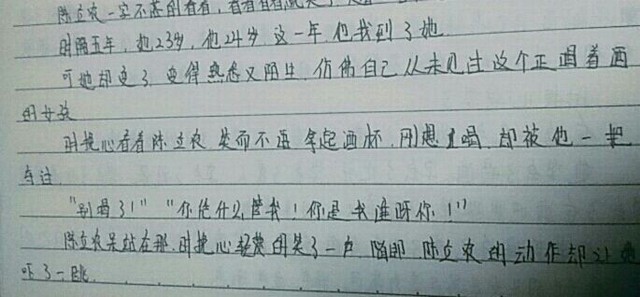 陈立农一字不落的看着,看着看着就笑了
时隔五年,她23岁,他24岁 这一年 他找到了她
可她却变了 变得熟悉又陌生 仿佛自己从未见过这个正喝着酒
的女孩
时挽心看着陈立农 笑而不语 拿起酒杯 刚想喝 却被他一把
夺住
"别喝了!" "你凭什么管我!你是我谁呀你!"
陈立农呆站在那,时挽心轻蔑的笑了一声 随即 陈立农的动作却让她
吓了一跳......